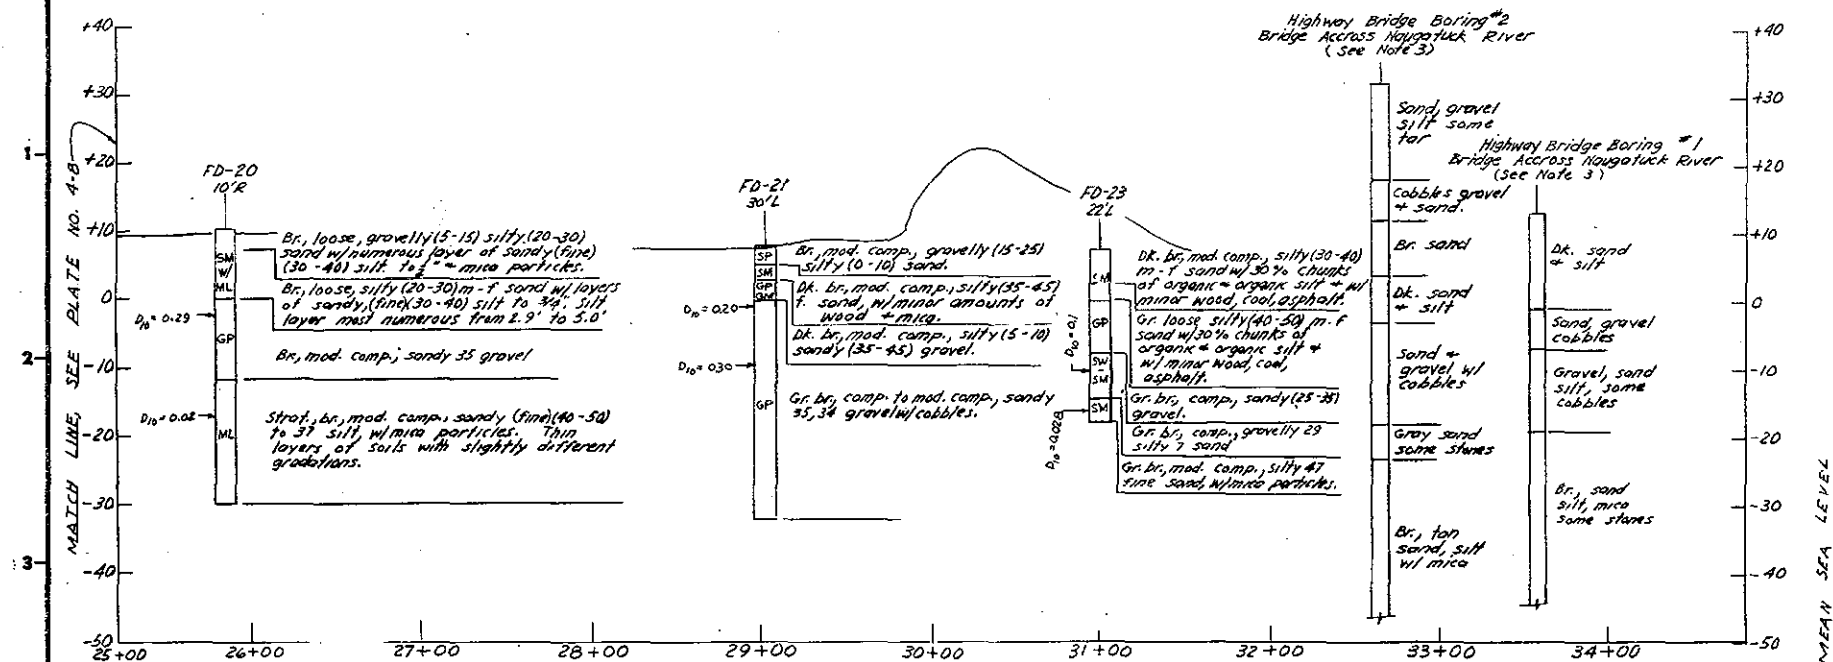 Highway Bridge Boring #2
Bridge Accross Naugatuck River
(See Note 3)
+40
+30
+20
+10
0
-10
-20
-30
-40
-50
MATCH LINE, SEE PLATE NO. 4-8
1
2
3
FD-20
10'R
SM
W/
ML
GP
ML
D10 = 0.29
D10 = 0.02
Br., loose, gravelly (5-15) silty (20-30)
sand w/numerous layer of sandy (fine)
(30-40) silt to ½" + mica particles.
Br., loose, silty (20-30) m-f sand w/ layers
of sandy, (fine) (30-40) silt to 3/4", silt
layer most numerous from 2.9' to 5.0'
Br., mod. comp., sandy 35 gravel
Strat., br., mod. comp., sandy (fine) (40-50)
to 37 silt, w/mica particles. Thin
layers of soils with slightly different
gradations.
FD-21
30'L
SP
SM
GP
GM
GP
D10 = 0.20
D10 = 0.30
Br., mod. comp., gravelly (15-25)
silty (0-10) sand.
Dk. br., mod. comp., silty (35-45)
f. sand, w/minor amounts of
wood + mica.
Dk. br., mod. comp., silty (5-10)
sandy (35-45) gravel.
Gr. br., comp. to mod. comp., sandy
35, 34 gravel w/cobbles.
FD-23
22'L
SM
GP
SW
-
SM
SM
D10 = 0.1
D10 = 0.028
Dk. br., mod. comp., silty (30-40)
m-f sand w/ 30% chunks
of organic + organic silt + w/
minor wood, coal, asphalt.
Gr. loose silty (40-50) m-f
sand w/30% chunks of
organic + organic silt +
w/ minor wood, coal,
asphalt.
Gr. br., comp., sandy (25-35)
gravel.
Gr. br., comp., gravelly 29
silty 7 sand
Gr. br., mod. comp., silty 47
fine sand, w/mica particles.
Sand, gravel
silt some
tar
Cobbles gravel
+ sand.
Br. sand
Dk. sand
+ silt
Sand +
gravel w/
cobbles
Gray sand
some stones
Br., tan
sand, silt
w/ mica
Highway Bridge Boring #1
Bridge Accross Naugatuck River
(See Note 3)
Dk. sand
+ silt
Sand, gravel
cobbles
Gravel, sand
silt, some
cobbles
Br., sand
silt, mica
some stones
+40
+30
+20
+10
0
-10
-20
-30
-40
-50
MEAN SEA LEVEL
25+00
26+00
27+00
28+00
29+00
30+00
31+00
32+00
33+00
34+00